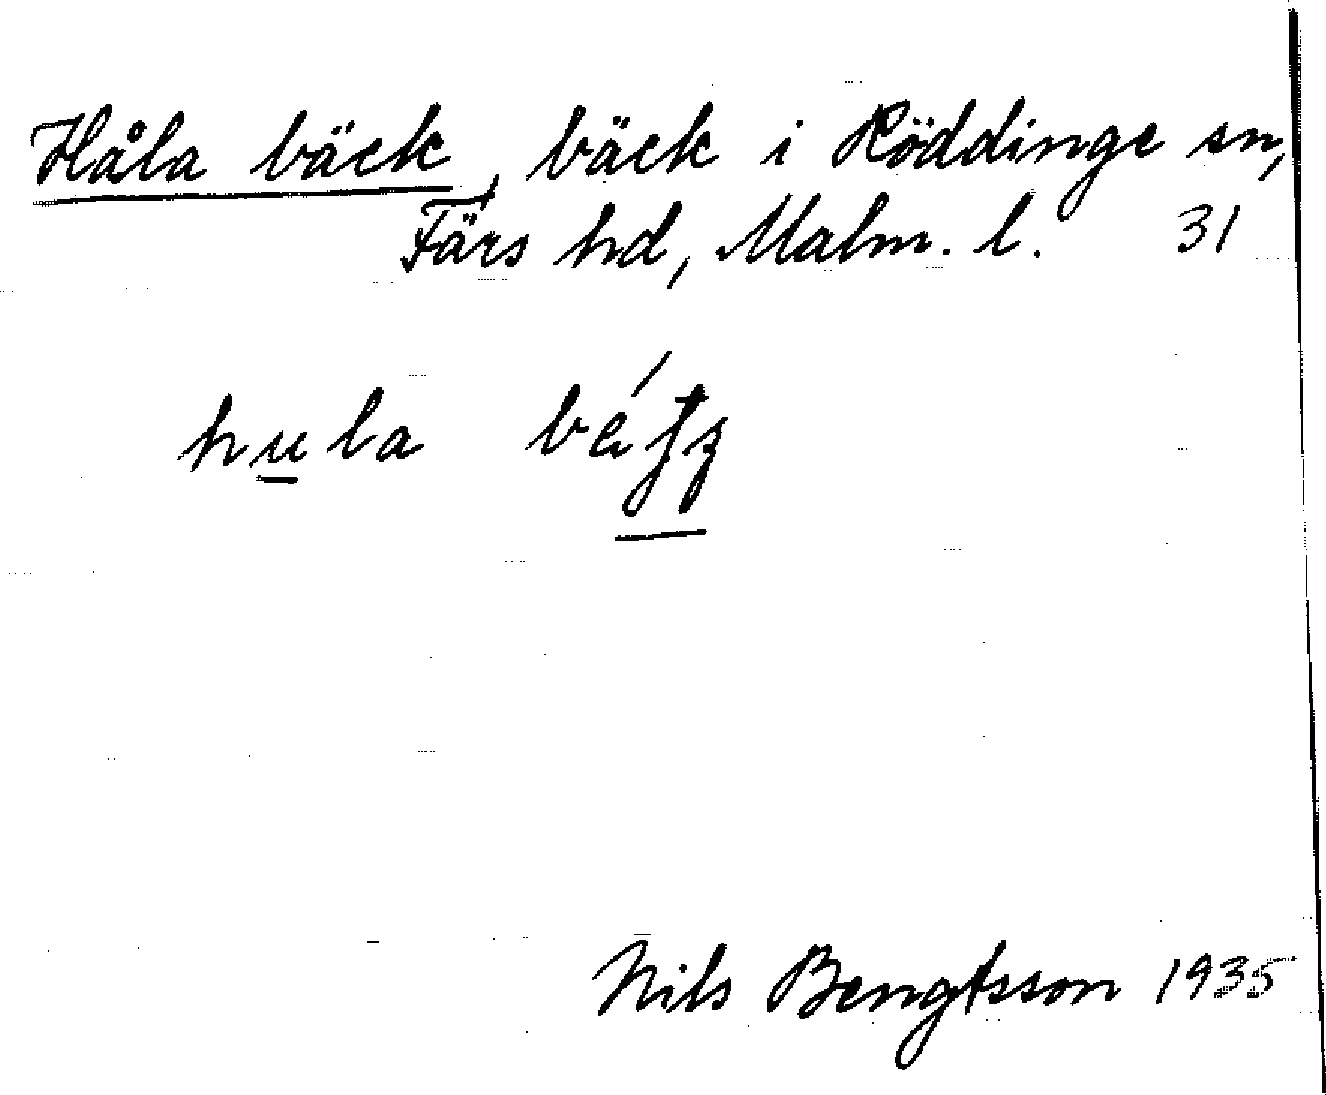 Håla bäck, bäck i Röddinge sn,
Färs hd, Malm. l. 31
hula
Nils Bengtsson 1935